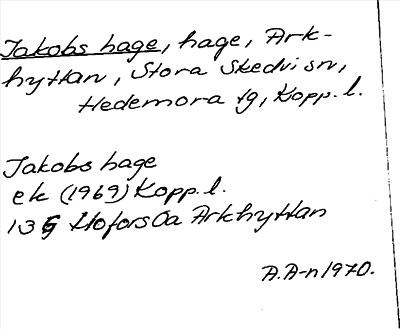 Jakobs hage, hage, Ark-
hyttan, Stora Skedvi sn,
Hedemora tg, Kopp. l.
Jakobs hage
ek (1969) Kopp. l.
13 G Hofors 0a Arkhyttan
A.A-n 1970.